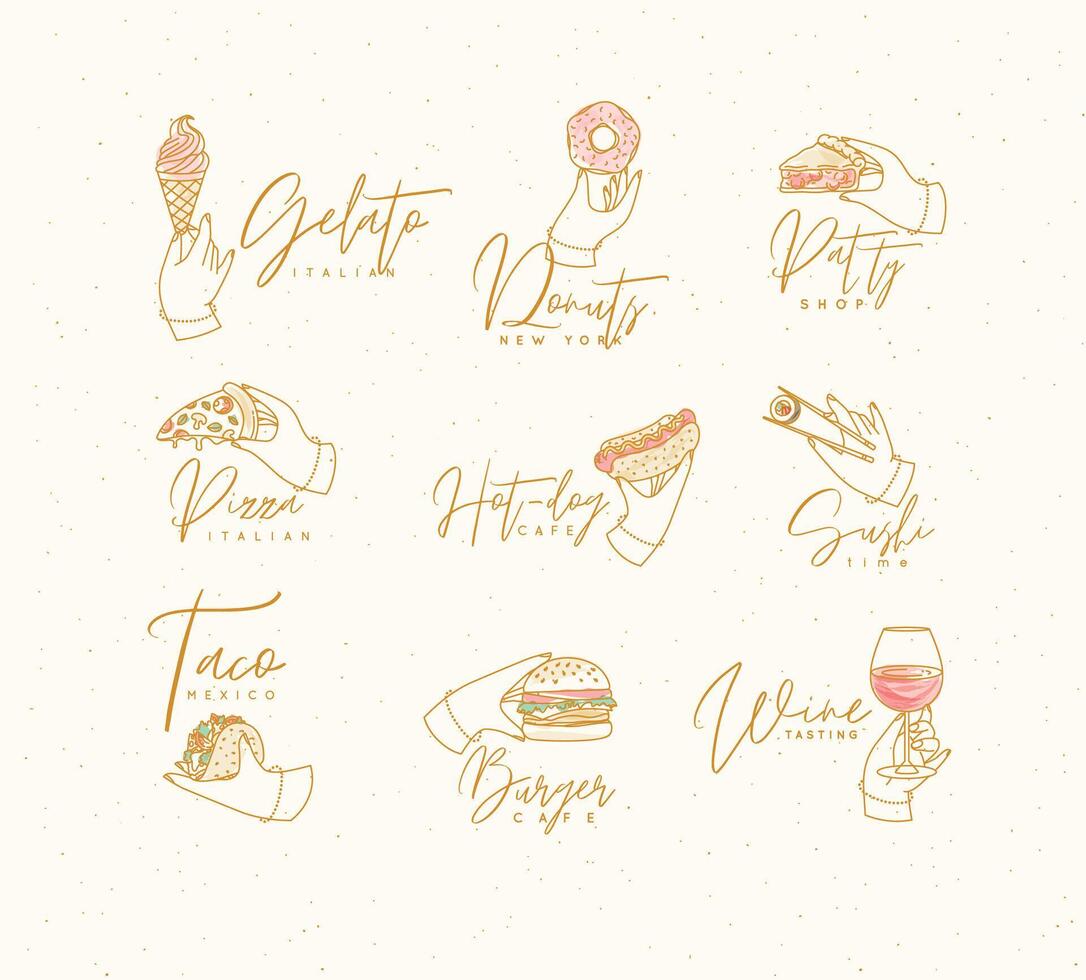 Gelato
ITALIAN
Donuts
NEW YORK
Patty
SHOP
Pizza
ITALIAN
Hot-dog
CAFE
Sushi
time
Taco
MEXICO
Burger
CAFE
Wine
TASTING